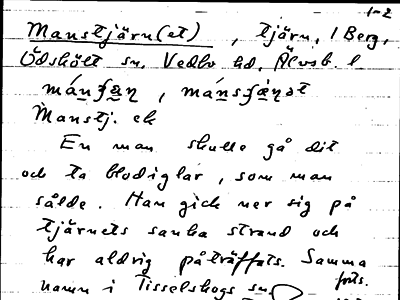 1-2
Manstjärn(et), tjärn, i Berg,
Ödskölt sn. Vedbo hd. Älvsb. l
Manstj. ek
En man skulle gå dit
och ta blodiglar, som man
sålde. Han gick ner sig på
tjärnets sanka strand och
har aldrig påträffats. Samma
forts.
namn i Tisselskogs sn